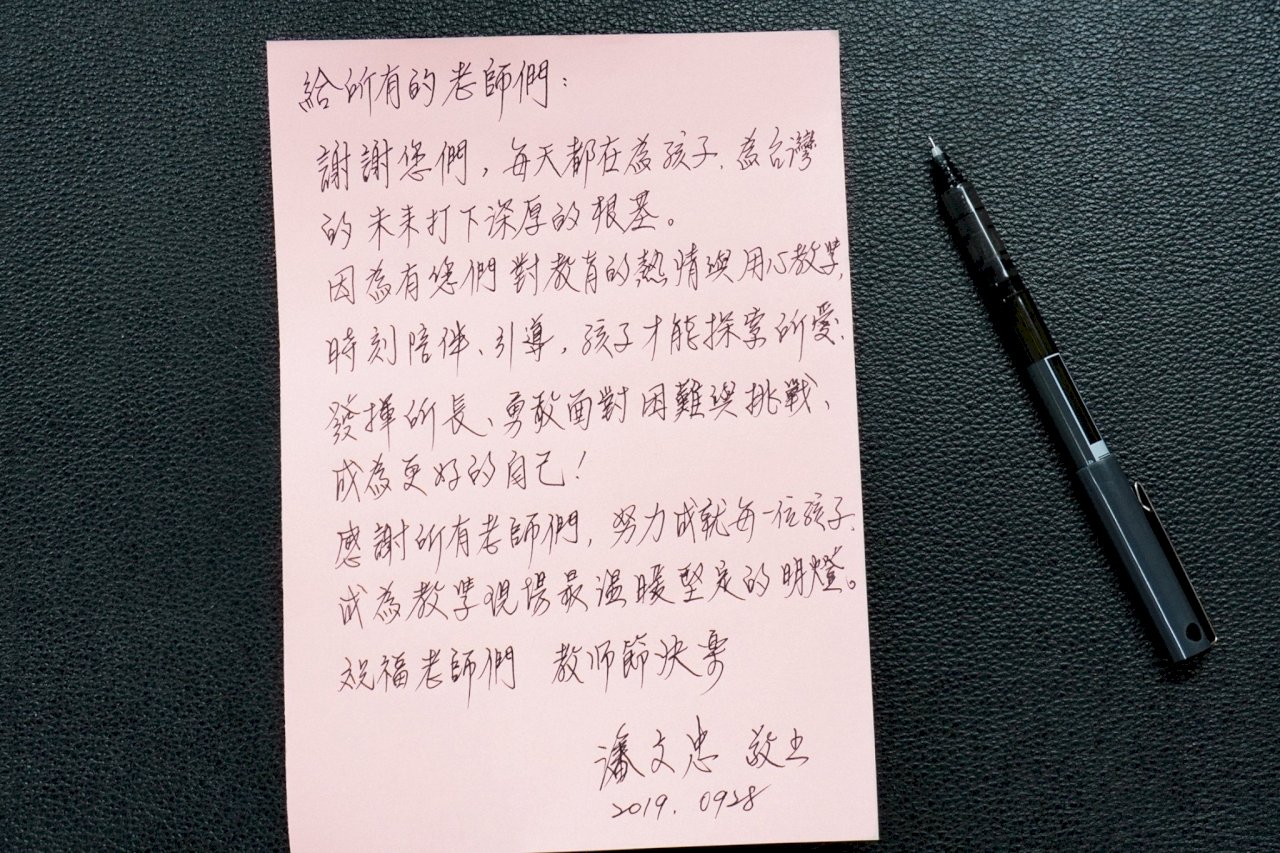 給所有的老師們：
謝謝您們，每天都在為孩子、為台灣
的未來打下深厚的根基。
因為有您們對教育的熱情與用心教學，
時刻陪伴、引導，孩子才能探索所愛、
發揮所長、勇敢面對困難與挑戰、
成為更好的自己！
感謝所有老師們，努力成就每一位孩子、
成為教學現場最溫暖堅定的明燈。
祝福老師們 教师節快樂
潘文忠 敬上
2019. 0928